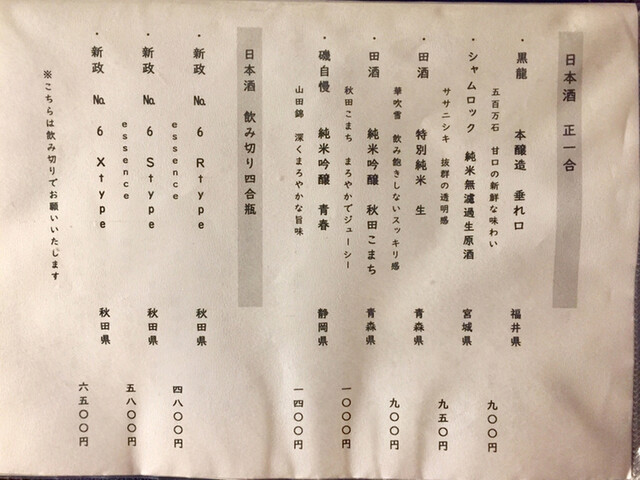 日本酒 正一合
・黒龍 本醸造 垂れ口 福井県 九〇〇円
五百万石 甘口の新鮮な味わい
・シャムロック 純米無濾過生原酒 宮城県 九五〇円
ササニシキ 抜群の透明感
・田酒 特別純米 生 青森県 九〇〇円
華吹雪 飲み飽きしないスッキリ感
・田酒 純米吟醸 秋田こまち 青森県 一〇〇〇円
秋田こまち まろやかでジューシー
・磯自慢 純米吟醸 青春 静岡県 一四〇〇円
山田錦 深くまろやかな旨味
日本酒 飲み切り四合瓶
・新政 No. 6 R type 秋田県 四八〇〇円
essence
・新政 No. 6 S type 秋田県 五八〇〇円
essence
・新政 No. 6 X type 秋田県 六五〇〇円
※こちらは飲み切りでお願いいたします